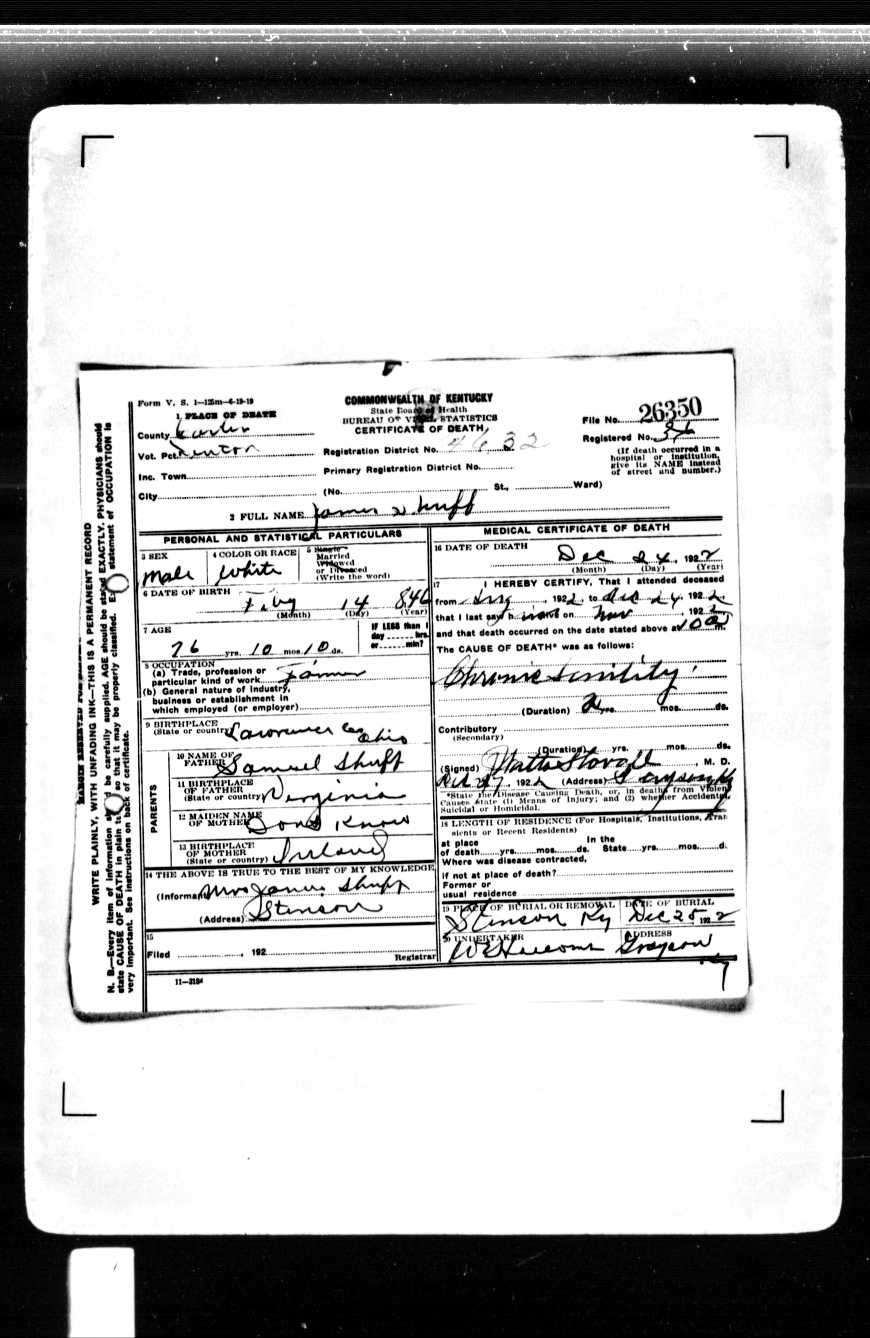 Form V. S. 1—125m—6-19-19
COMMONWEALTH OF KENTUCKY
State Board of Health
BUREAU OF VITAL STATISTICS
CERTIFICATE OF DEATH
File No. 26350
Registered No.
(If death occurred in a hospital or institution, give its NAME instead of street and number.)
1 PLACE OF DEATH
County Carter
Vot. Pct.
Registration District No. 4632
Inc. Town
Primary Registration District No.
City (No. St., Ward)
2 FULL NAME James Shuff
PERSONAL AND STATISTICAL PARTICULARS
3 SEX
Male
4 COLOR OR RACE
White
5 Single
Married
Widowed
or Divorced
(Write the word)
6 DATE OF BIRTH
14 846
(Month) (Day) (Year)
7 AGE
76 yrs. 10 mos. 10 ds.
IF LESS than 1
day hrs.
or min?
8 OCCUPATION
(a) Trade, profession or
particular kind of work Farmer
(b) General nature of Industry,
business or establishment in
which employed (or employer)
9 BIRTHPLACE
(State or country) Lawrence Co
Ohio
PARENTS
10 NAME OF
FATHER Samuel Shuff
11 BIRTHPLACE
OF FATHER
(State or country) Virginia
12 MAIDEN NAME
OF MOTHER Dont Know
13 BIRTHPLACE
OF MOTHER
(State or country) Ireland
14 THE ABOVE IS TRUE TO THE BEST OF MY KNOWLEDGE
(Informant) Mrs James Shuff
(Address) Stinson
15
Filed , 192
Registrar
11—3184
MEDICAL CERTIFICATE OF DEATH
16 DATE OF DEATH
Dec 24, 1922
(Month) (Day) (Year)
17 I HEREBY CERTIFY, That I attended deceased
from , 1922 to Dec 24, 1922
that I last saw h alive on Nov , 1922
and that death occurred on the date stated above at m.
The CAUSE OF DEATH* was as follows:
Chronic Senility
(Duration) 2 yrs. mos. ds.
Contributory
(Secondary)
(Duration) yrs. mos. ds.
(Signed) Watts Stovall, M. D.
Dec 27, 1922 (Address) Grayson Ky
*State the Disease Causing Death, or, in deaths from Violent
Causes state (1) Means of Injury; and (2) whether Accidental,
Suicidal or Homicidal.
18 LENGTH OF RESIDENCE (For Hospitals, Institutions, Tran-
sients or Recent Residents)
at place In the
of death yrs. mos. ds. State yrs. mos. d.
Where was disease contracted,
if not at place of death?
Former or
usual residence
19 PLACE OF BURIAL OR REMOVAL
Stinson Ky
DATE OF BURIAL
Dec 25 1922
20 UNDERTAKER
ADDRESS
Grayson
Ky
WRITE PLAINLY, WITH UNFADING INK—THIS IS A PERMANENT RECORD
N. B.—Every item of information should be carefully supplied. AGE should be stated EXACTLY. PHYSICIANS should
state CAUSE OF DEATH in plain terms so that it may be properly classified. Exact statement of OCCUPATION is
very important. See instructions on back of certificate.